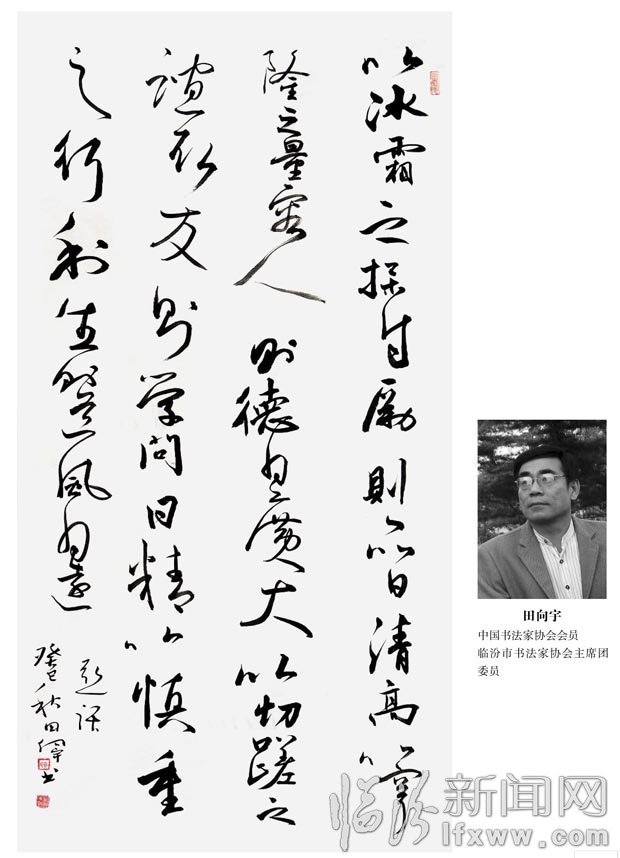 以冰霜之操自励則品日清高以穹
隆之量容人則德日廣大以切蹉之
誼取友則学問日精以慎重
之行利生則道風日遠
癸巳秋田書
田向宇
中国书法家协会会员
临汾市书法家协会主席团
委员
临汾新闻网
lfxww.com